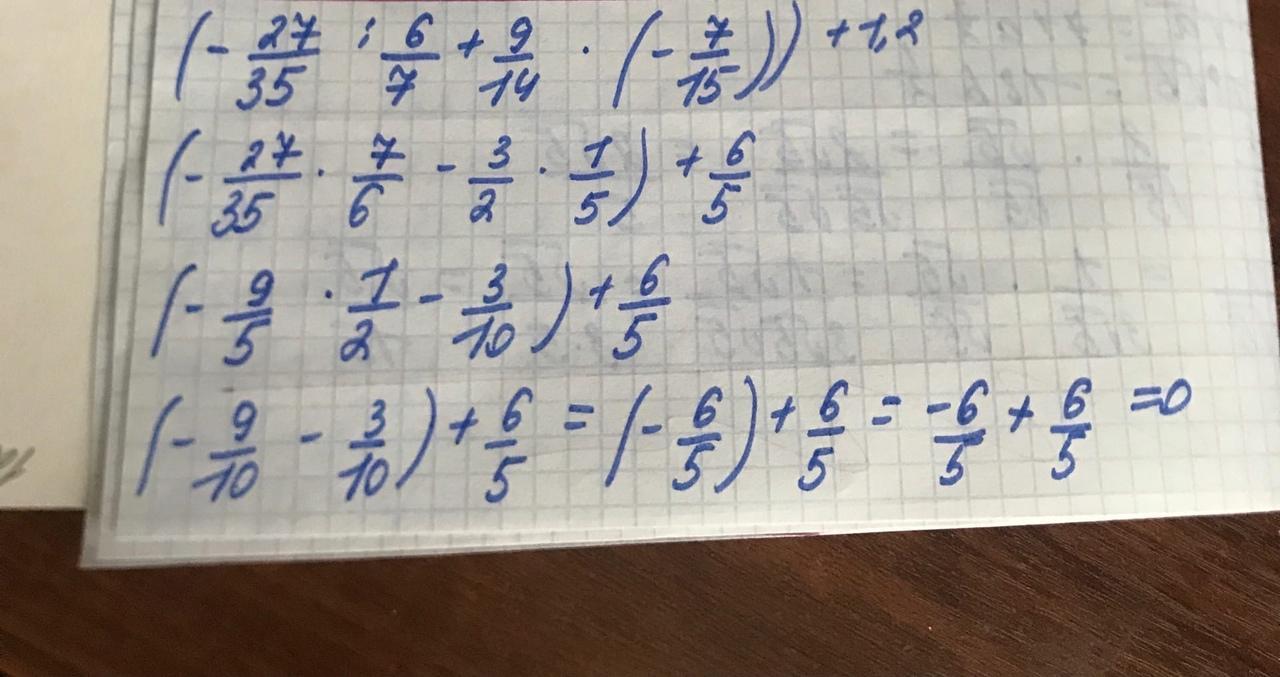 (- 27/35 : 6/7 + 9/14 · (- 7/15)) + 1,2
(- 27/35 · 7/6 - 3/2 · 1/5) + 6/5
(- 9/5 · 1/2 - 3/10) + 6/5
(- 9/10 - 3/10) + 6/5 = (- 6/5) + 6/5 = -6/5 + 6/5 = 0